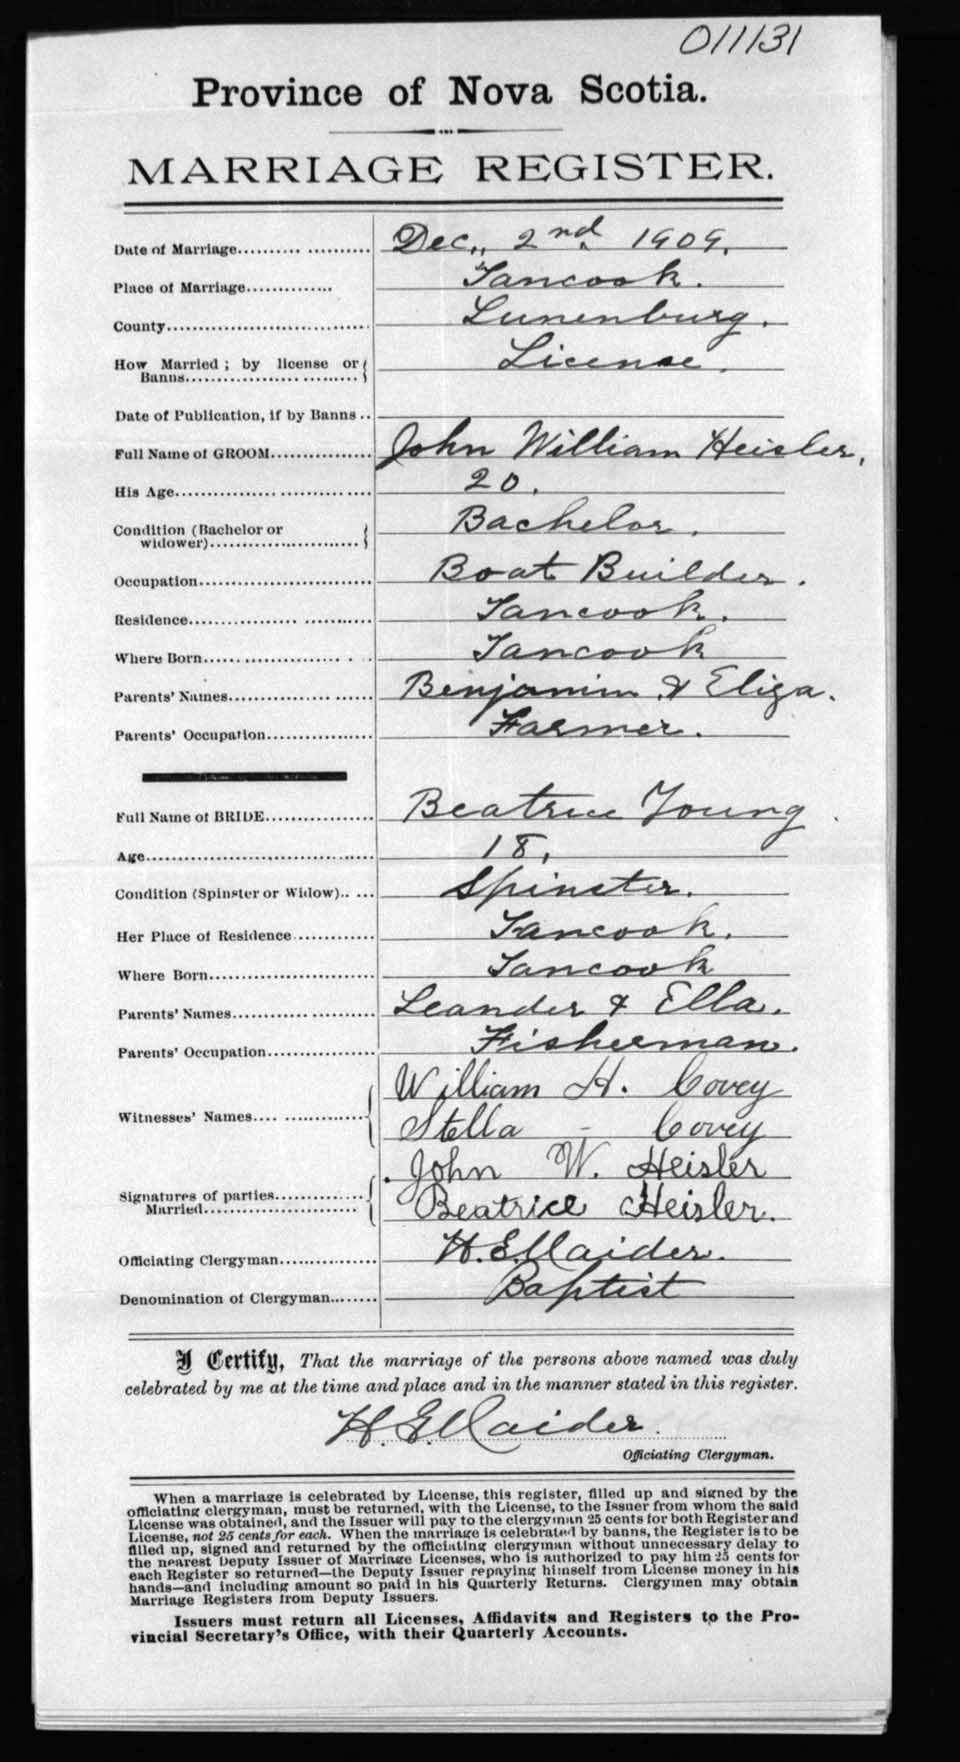 011131
Province of Nova Scotia.
MARRIAGE REGISTER.
Date of Marriage.................... Dec,, 2nd. 1909.
Place of Marriage............. Tancook.
County............................... Lunenburg.
How Married ; by license or License.
Banns..........................
Date of Publication, if by Banns ..
Full Name of GROOM............... John William Heisler,
His Age............................. 20.
Condition (Bachelor or Bachelor.
widower)........................
Occupation.......................... Boat Builder.
Residence........................... Tancook.
Where Born....................... Tancook
Parents' Names..................... Benjamin & Eliza.
Parents' Occupation................ Farmer.
Full Name of BRIDE................ Beatrice Young
Age................................. 18,
Condition (Spinster or Widow).. ... Spinster.
Her Place of Residence ............ Tancook.
Where Born........................ Tancook
Parents' Names..................... Leander & Ella.
Parents' Occupation................ Fisherman.
William H. Covey
Witnesses' Names.... .............. Stella - Covey
John W. Heisler
Signatures of parties...............
Married.......................... Beatrice Heisler.
Officiating Clergyman............... H. E. Maider.
Denomination of Clergyman........ Baptist
I Certify, That the marriage of the persons above named was duly
celebrated by me at the time and place and in the manner stated in this register.
H. E. Maider.
Officiating Clergyman.
When a marriage is celebrated by License, this register, filled up and signed by the
officiating clergyman, must be returned, with the License, to the Issuer from whom the said
License was obtained, and the Issuer will pay to the clergyman 25 cents for both Register and
License, not 25 cents for each. When the marriage is celebrated by banns, the Register is to be
filled up, signed and returned by the officiating clergyman without unnecessary delay to
the nearest Deputy Issuer of Marriage Licenses, who is authorized to pay him 25 cents for
each Register so returned—the Deputy Issuer repaying himself from License money in his
hands—and including amount so paid in his Quarterly Returns. Clergymen may obtain
Marriage Registers from Deputy Issuers.
Issuers must return all Licenses, Affidavits and Registers to the Pro-
vincial Secretary's Office, with their Quarterly Accounts.